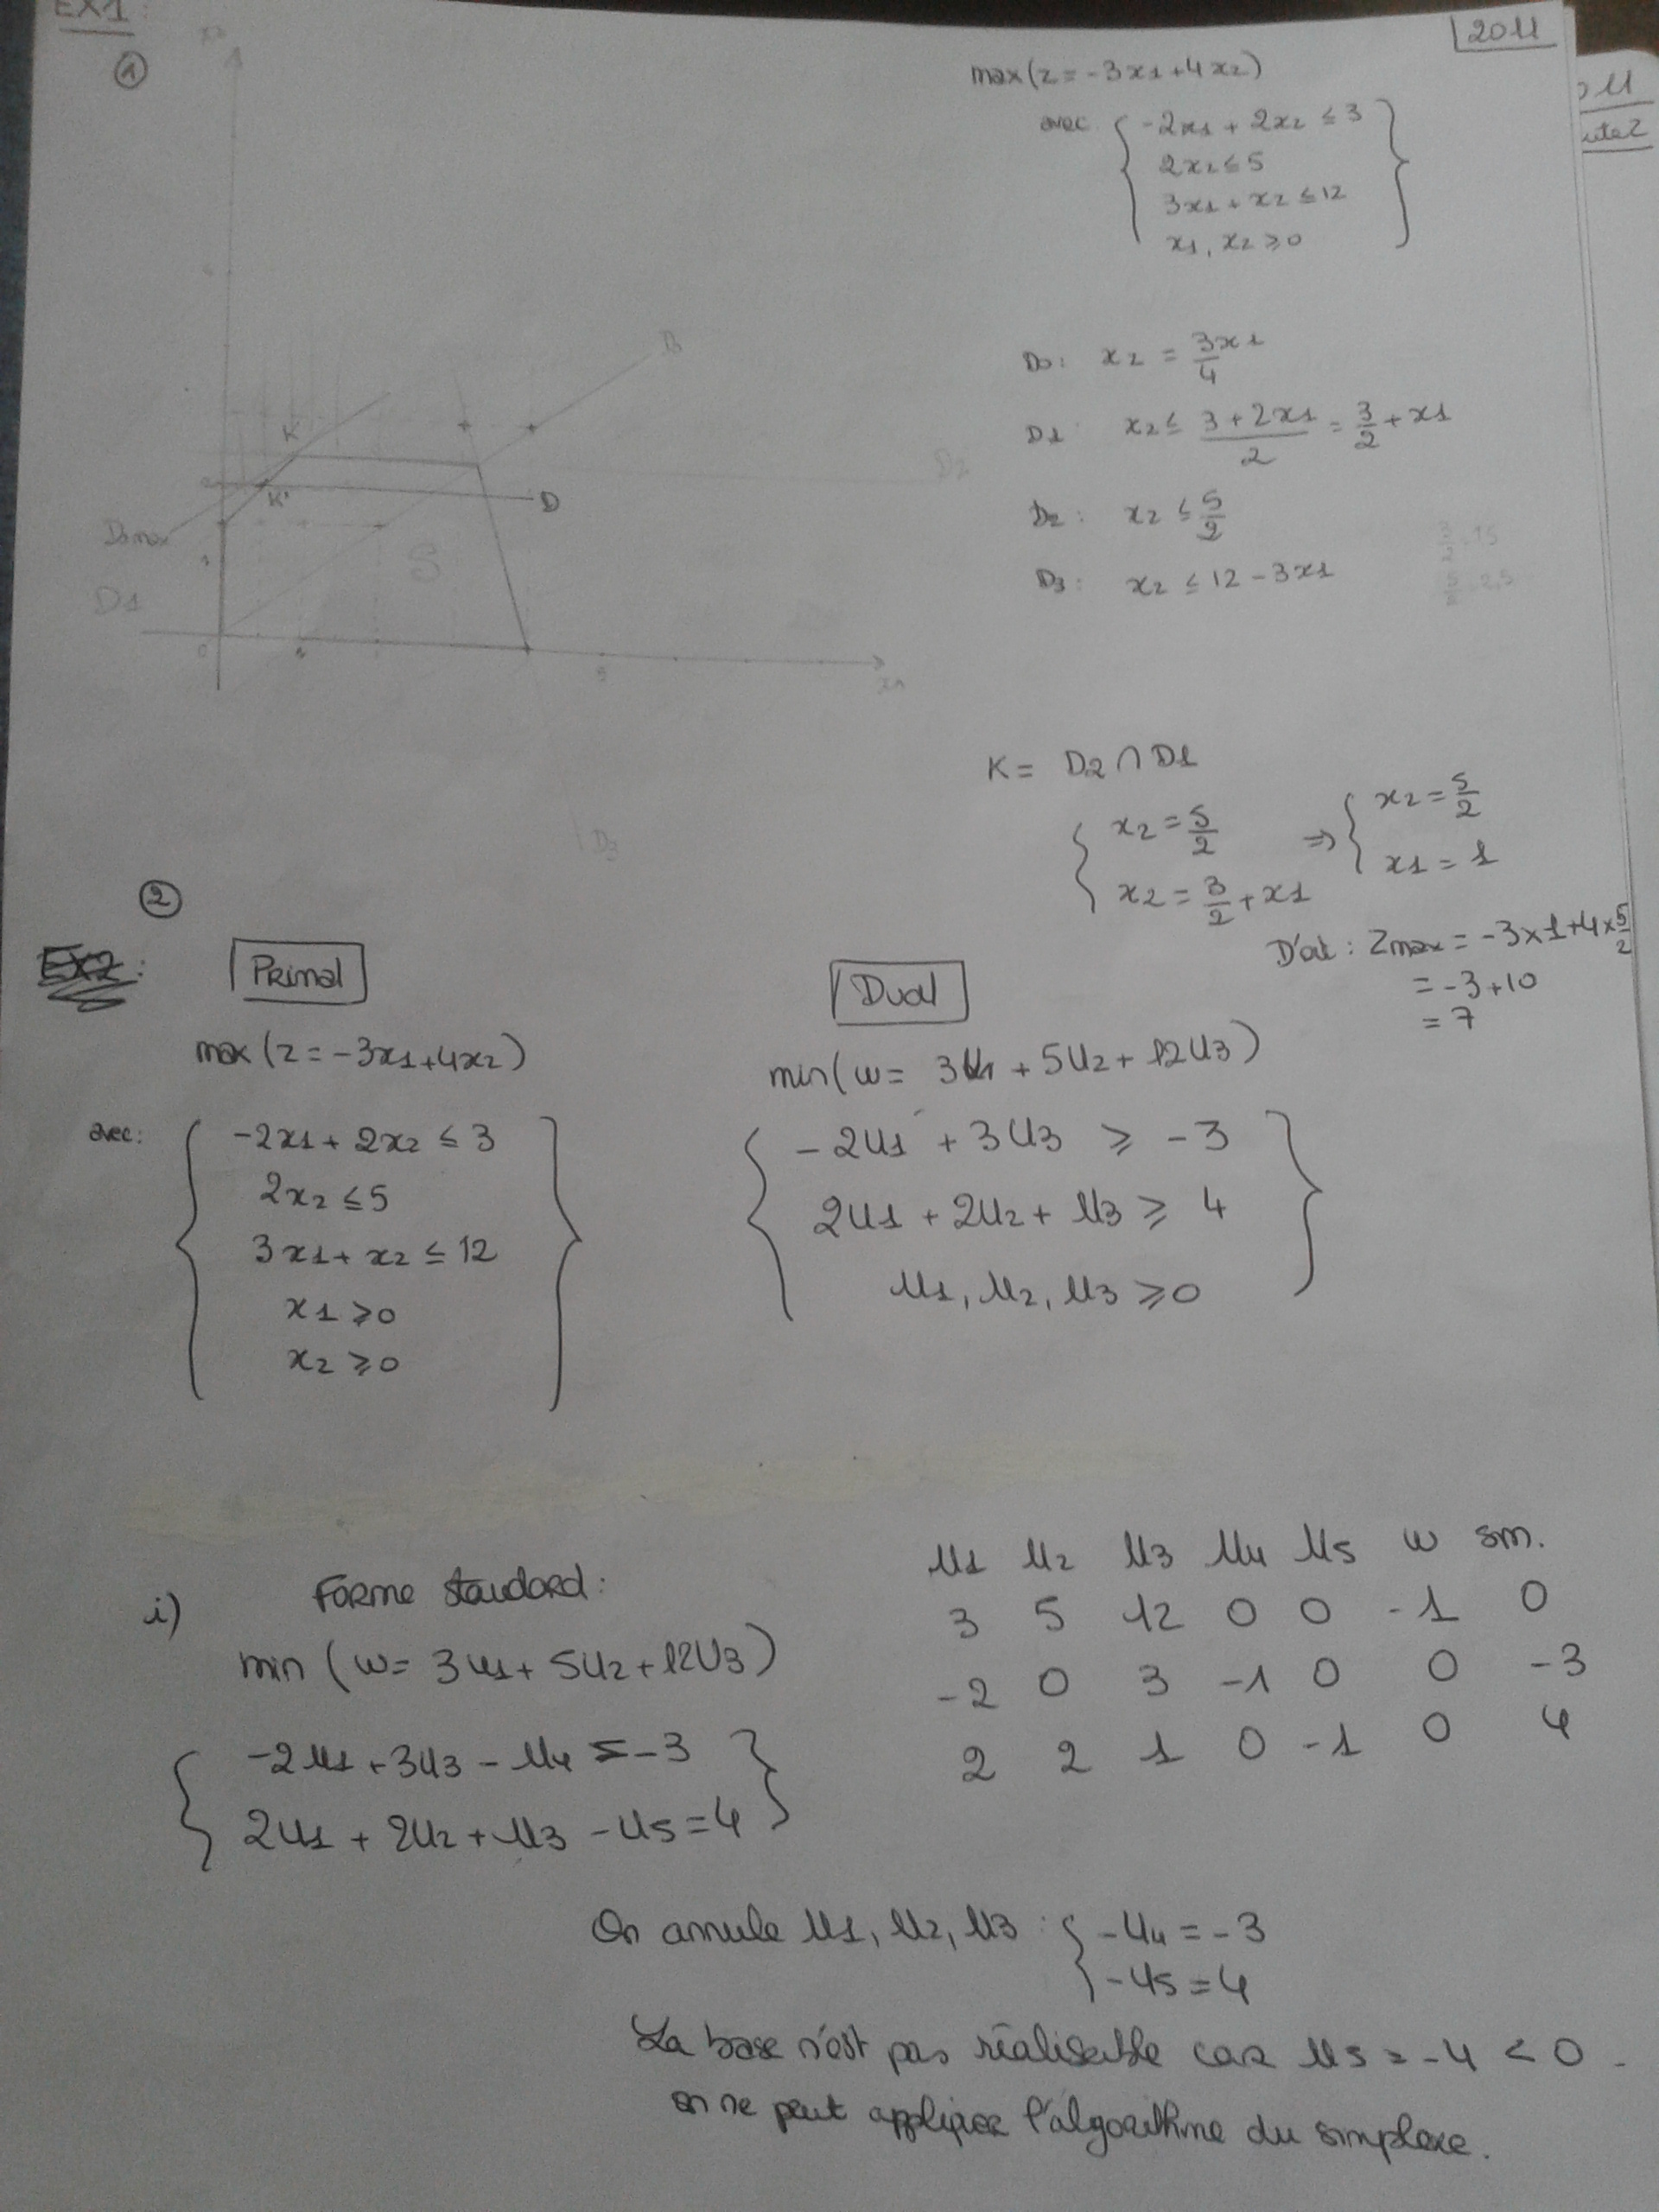 EX1:
2011
①
x2
max(z = -3x1 + 4x2)
avec { -2x1 + 2x2 ≤ 3
2x2 ≤ 5
3x1 + x2 ≤ 12
x1, x2 ≥ 0 }
D0: x2 = 3x1/4
D1: x2 ≤ (3 + 2x1)/2 = 3/2 + x1
D2: x2 ≤ 5/2
D3: x2 ≤ 12 - 3x1
K
K'
D
D2
D0max
S
D1
D3
K = D2 ∩ D1
{ x2 = 5/2
x2 = 3/2 + x1
⇒ { x2 = 5/2
x1 = 1
D'où : Zmax = -3×1+4×5/2
= -3+10
= 7
②
Primal
max (z = -3x1+4x2)
avec: { -2x1 + 2x2 ≤ 3
2x2 ≤ 5
3x1 + x2 ≤ 12
x1 ≥ 0
x2 ≥ 0 }
Dual
min(w = 3U1 + 5U2 + 12U3)
{ -2U1 + 3U3 ≥ -3
2U1 + 2U2 + U3 ≥ 4
U1, U2, U3 ≥ 0 }
i) Forme standard:
min (w = 3U1 + 5U2 + 12U3)
{ -2U1 + 3U3 - U4 = -3
2U1 + 2U2 + U3 - U5 = 4 }
U1 U2 U3 U4 U5 w sm.
3 5 12 0 0 -1 0
-2 0 3 -1 0 0 -3
2 2 1 0 -1 0 4
On annule U1, U2, U3 : { -U4 = -3
-U5 = 4
La base n'est pas réalisable car U5 = -4 < 0.
on ne peut appliquer l'algorithme du simplexe.